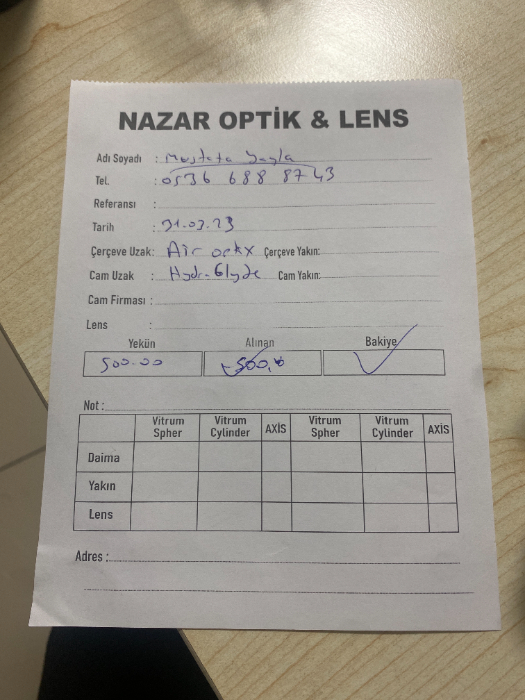 NAZAR OPTİK & LENS
Adı Soyadı : Mustafa Yayla
Tel. : 0536 688 8743
Referansı :
Tarih : 31.03.23
Çerçeve Uzak: Air optix Çerçeve Yakın:
Cam Uzak : Hydra Glyde Cam Yakın:
Cam Firması :
Lens :
Yekün Alınan Bakiye
500.00 500,0
Not :
Vitrum Spher Vitrum Cylinder AXİS Vitrum Spher Vitrum Cylinder AXİS
Daima
Yakın
Lens
Adres :